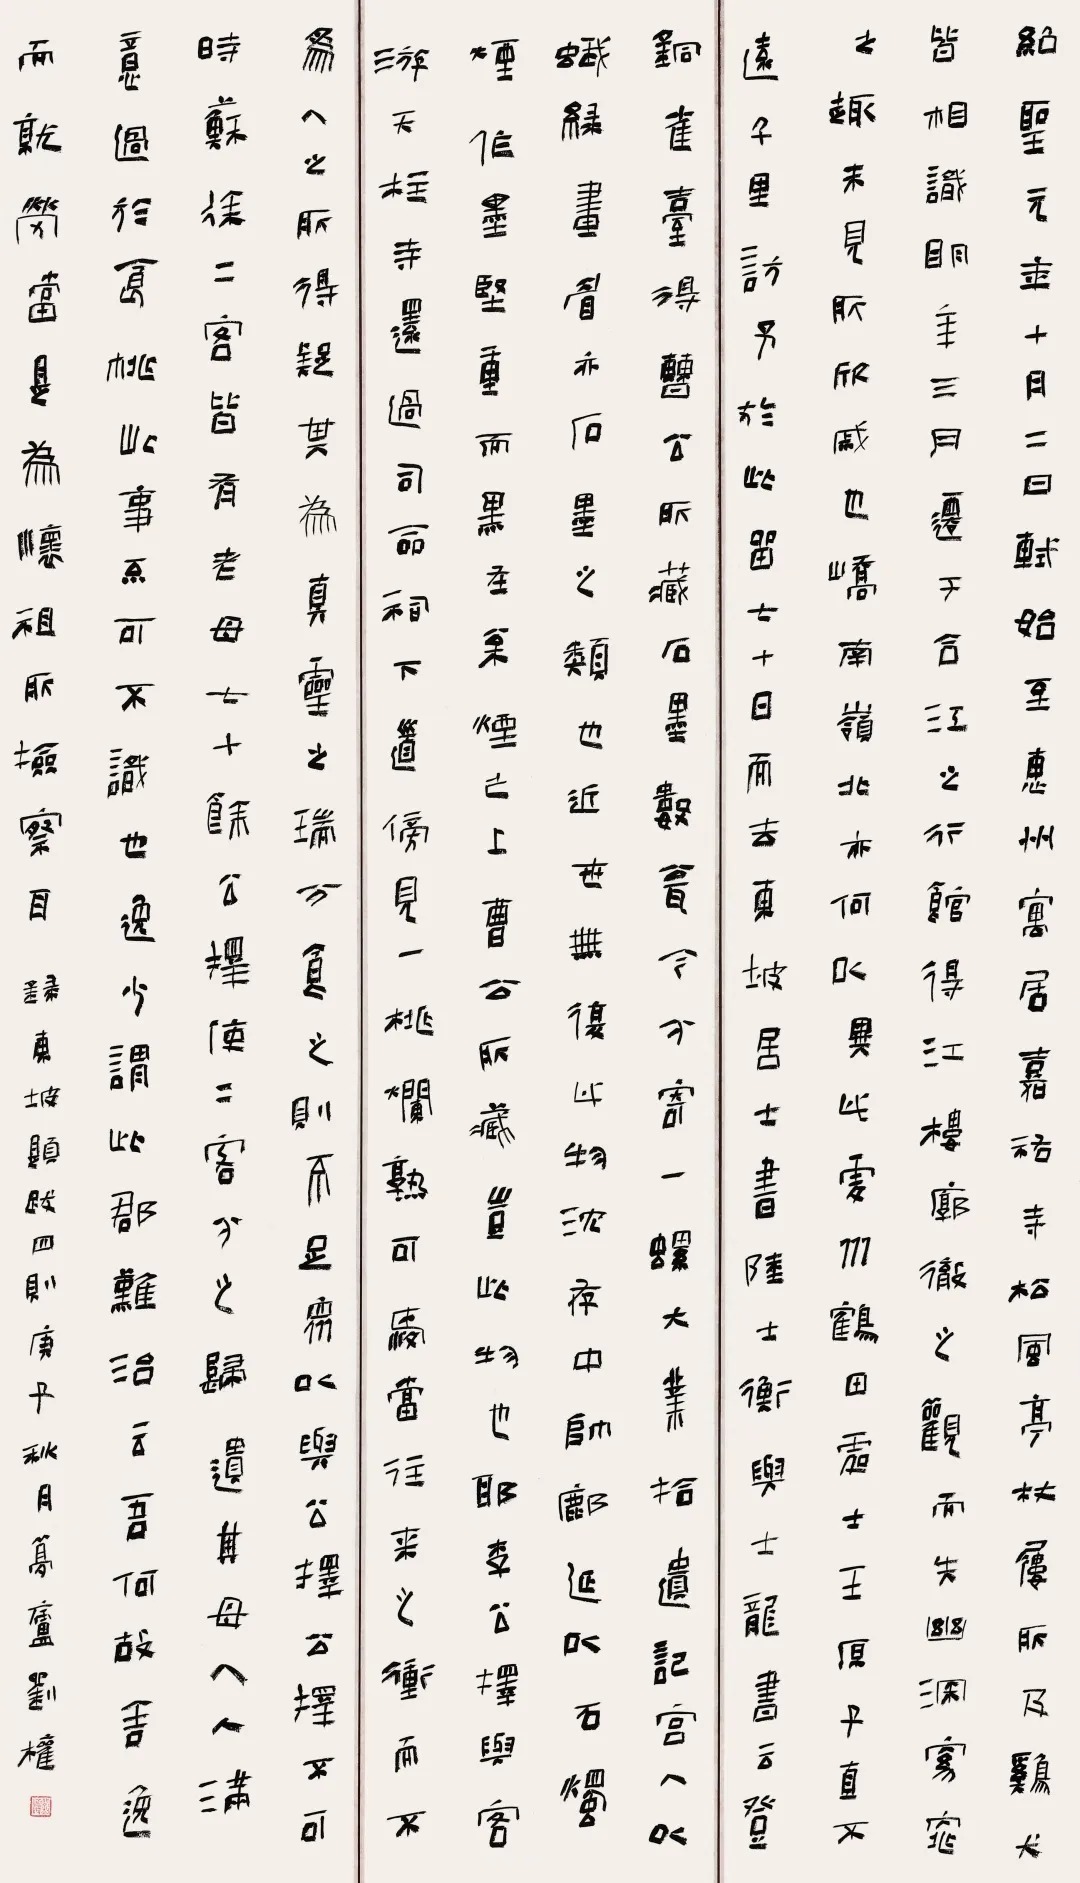 紹聖元年十月二日軾始至惠州寓居嘉祐寺松風亭杖屨所及雞犬
皆相識明年三月遷于合江之行館得江樓廓徹之觀而失幽深窈窕
之趣未見所欣戚也嶠南嶺北亦何以異此虔州鶴田處士王原子直不
遠千里訪予於此留七十日而去東坡居士書陸士衡與士龍書云登
銅雀臺得曹公所藏石墨數甕今分寄一螺大業拾遺記宮人以
蛾綠畫眉亦石墨之類也近世無復此物沈存中帥鄜延以石燭
煙作墨堅重而黑在松煙之上曹公所藏豈此物也耶李公擇與客
游天柱寺還過司命祠下道傍見一桃爛熟可愛當往來之衝而不
為人之所得疑其為真靈之瑞分食之則不足眾以與公擇公擇不可
時蘇徐二客皆有老母七十餘公擇使二客分之歸遺其母人人滿
意過於食桃此事亦可不識也逸少謂此郡難治云吾何故舍逸
而就勞當是為懷祖所檢察耳 錄東坡題跋四則庚子秋月篆廬劉權